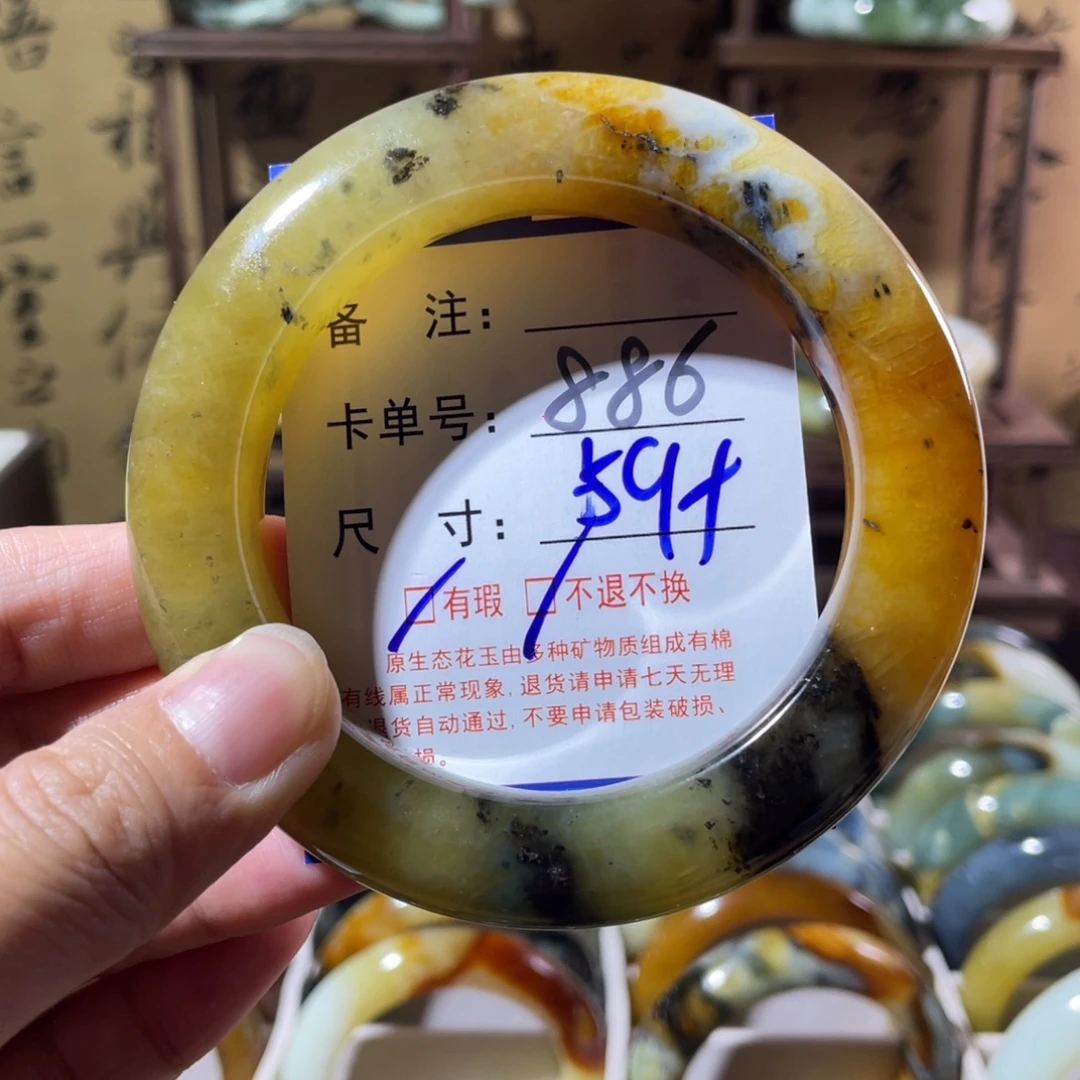 备 注：
卡单号：886
尺 寸：59+
有瑕 不退不换
原生态花玉由多种矿物质组成有棉
有线属正常现象，退货请申请七天无理
退货自动通过，不要申请包装破损、
损。
善
言
一
室
之